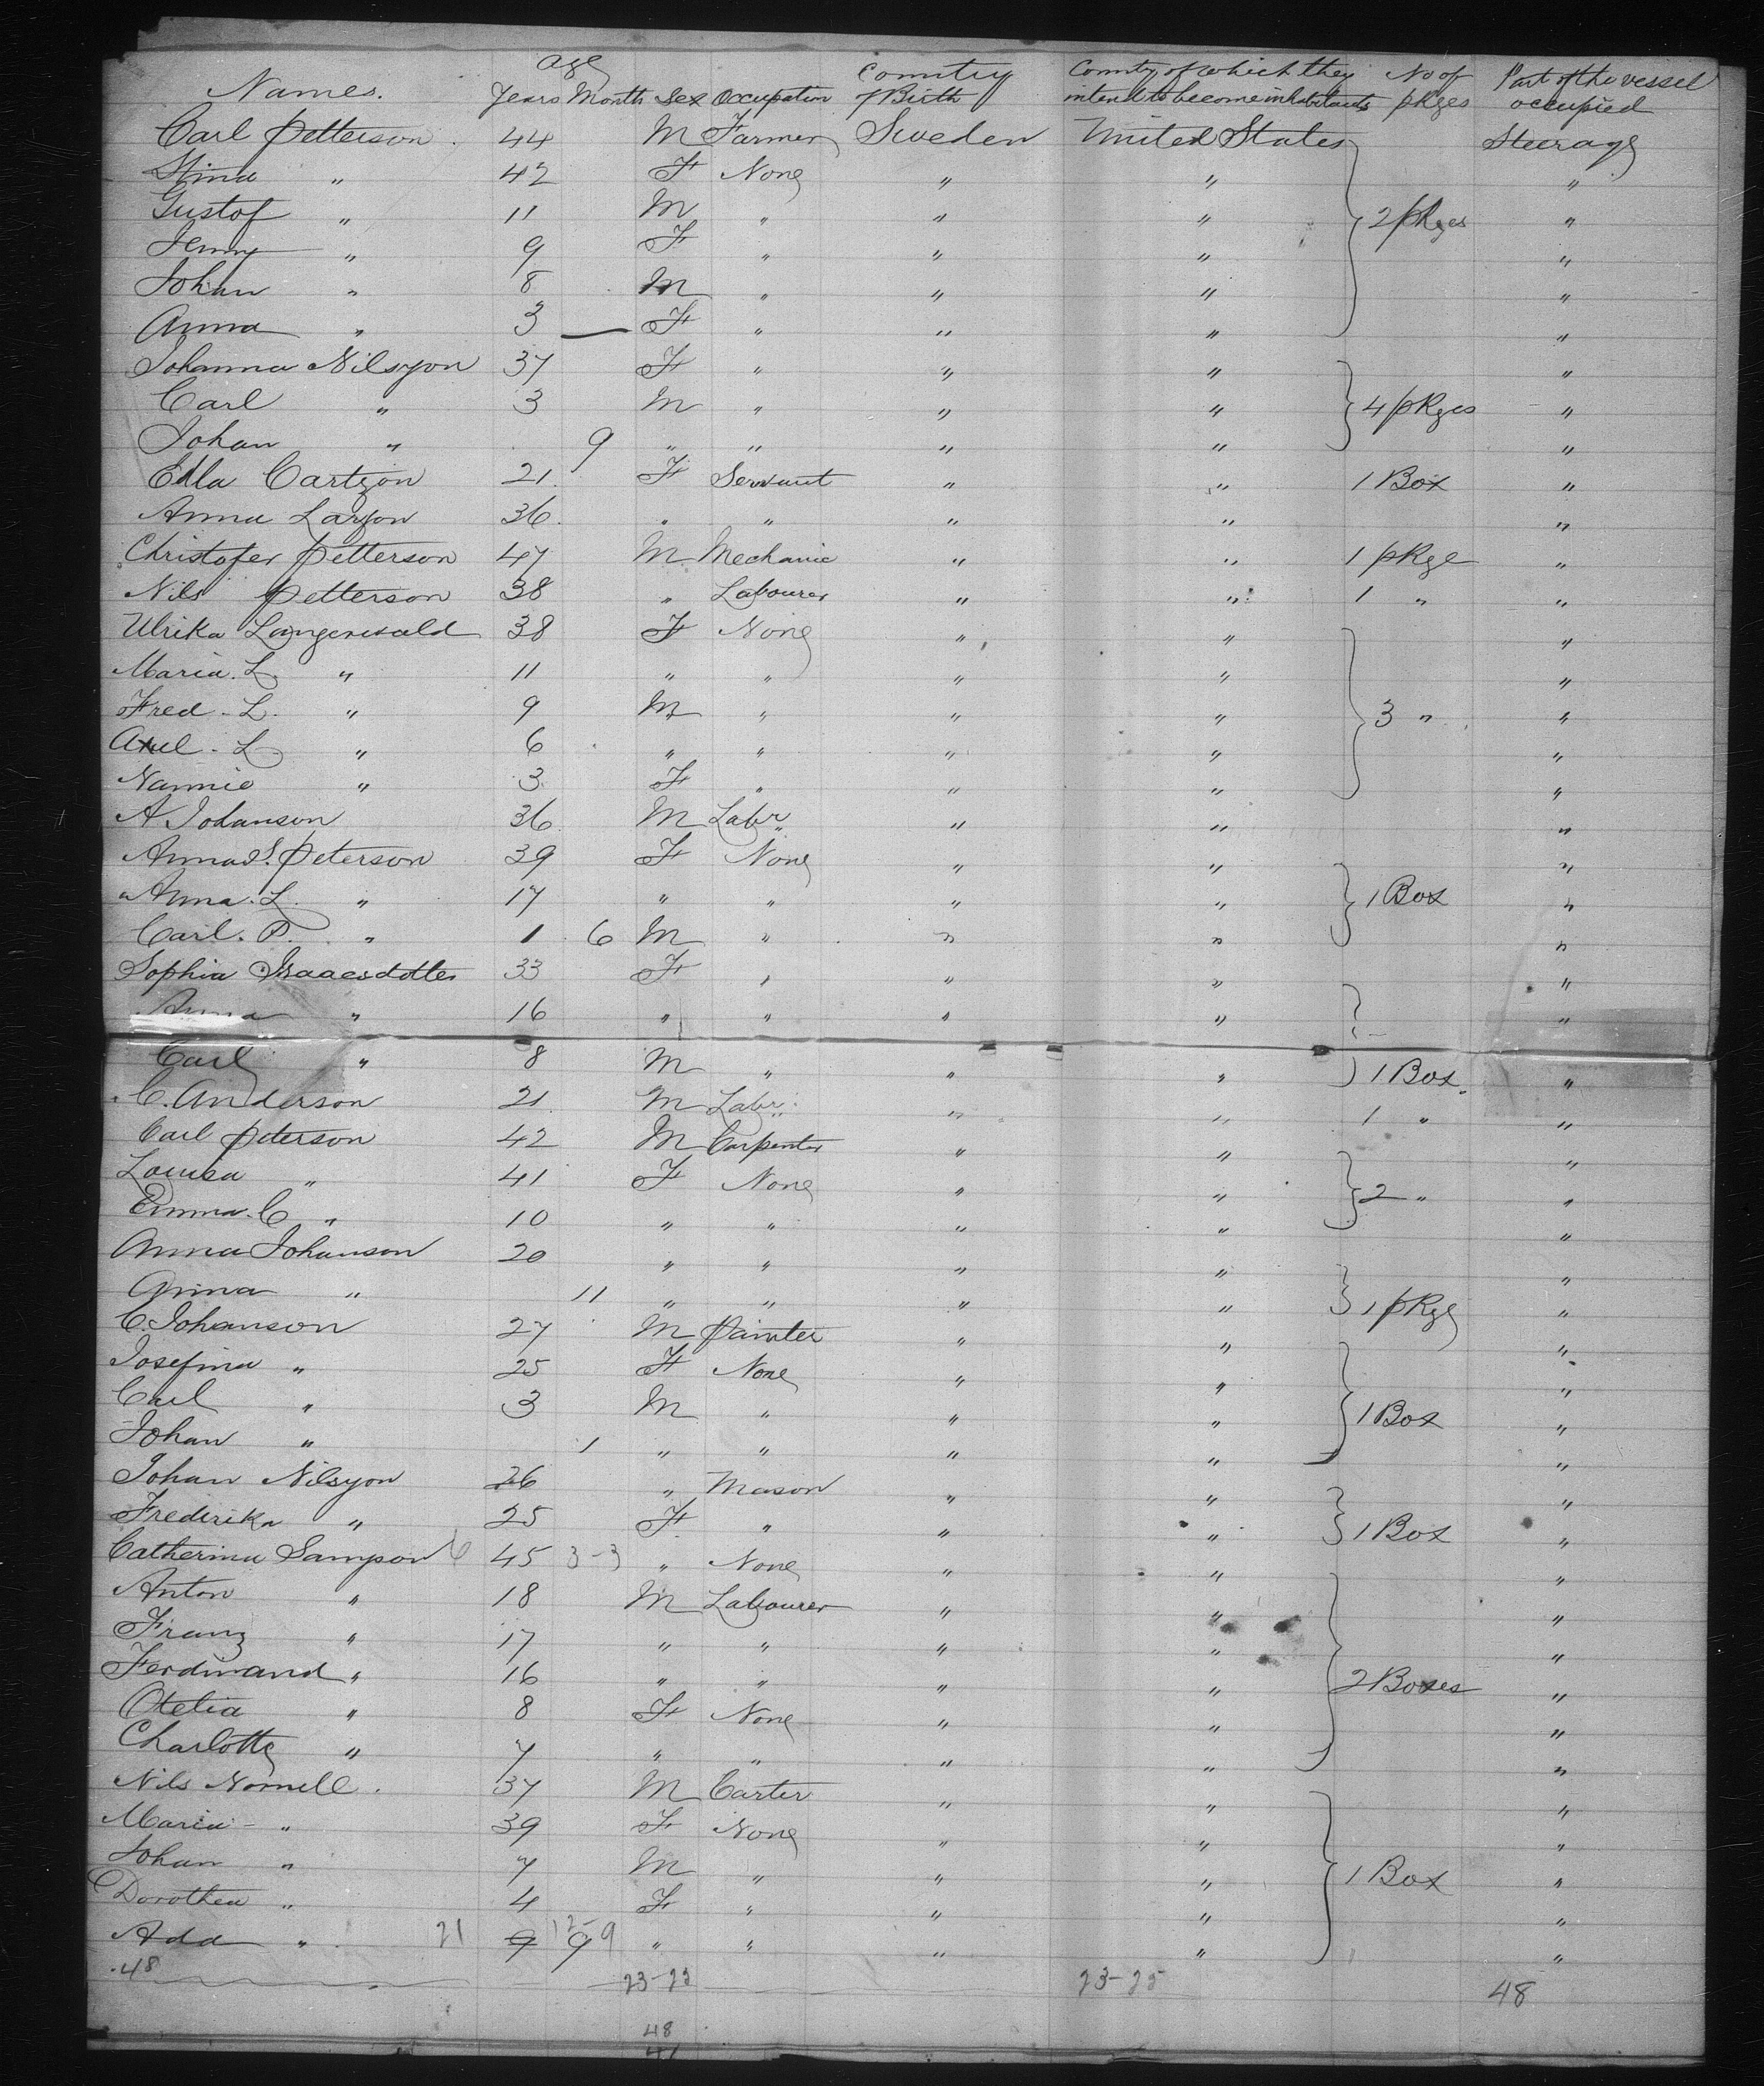 Names. Age Years Month Sex Occupation Country of Birth Country of which they intend to become inhabitants No of pkges Part of the vessel occupied
Carl Petterson. 44 M Farmer Sweden United States Steerage
Stina " 42 F None " " "
Gustof " 11 M " " " 2 pkges "
Jenny " 9 F " " " "
Johan " 8 M " " " "
Anna " 3 — F " " " "
Johanna Nilsson 37 F " " " "
Carl " 3 M " " " 4 pkges "
Johan " 9 " " " " "
Edla Cartzon 21. F Servant " " 1 Box "
Anna Larson 36. " " " " "
Christofer Petterson 47 M Mechanic " " 1 pkge "
Nils Petterson 38 " Labourer " " 1 " "
Ulrika Langerwald 38 F None " " "
Maria. L. " 11 " " " " "
Fred - L. " 9 M " " " 3 " "
Axel - L " 6 " " " " "
Nannie " 3. F " " " "
A Johanson 36. M Labr " " "
Anna S. Peterson 39 F None " " "
Anna. L. " 17 " " " " 1 Box "
Carl. P. " 1 6 M " " " "
Sophia Isaacsdotter 33 F " " " "
Anna " 16 " " " " "
Carl " 8 M " " " 1 Box. "
C. Anderson 21. M Labr. " " 1 " "
Carl Peterson 42 M Carpenter " " "
Louisa " 41 F None " " 2 " "
Emma. C " 10 " " " " "
Anna Johanson 20 " " " " "
Anna " 11 " " " " 1 pkge "
C. Johanson 27 M Painter " " "
Josefina " 25 F None " " "
Carl " 3 M " " " 1 Box "
Johan " 1 " " " " "
Johan Nilsson 26 " Mason " " "
Frederika " 25 F. " " " 1 Box "
Catherina Sampson 6 45 3-3 " None " " "
Anton " 18 M Labourer " " "
Franz " 17 " " " " "
Ferdinand " 16 " " " " 2 Boxes "
Otelia " 8 F None " " "
Charlotte " 7 " " " " "
Nils Nornell. 37 M Carter " " "
Maria - " 39 F None " " "
Johan " 7 M " " " 1 Box "
Dorothea " 4 F " " " "
Ada " 21 9 12-9 9 " " " " "
48 23-23 23-25 48
48
41